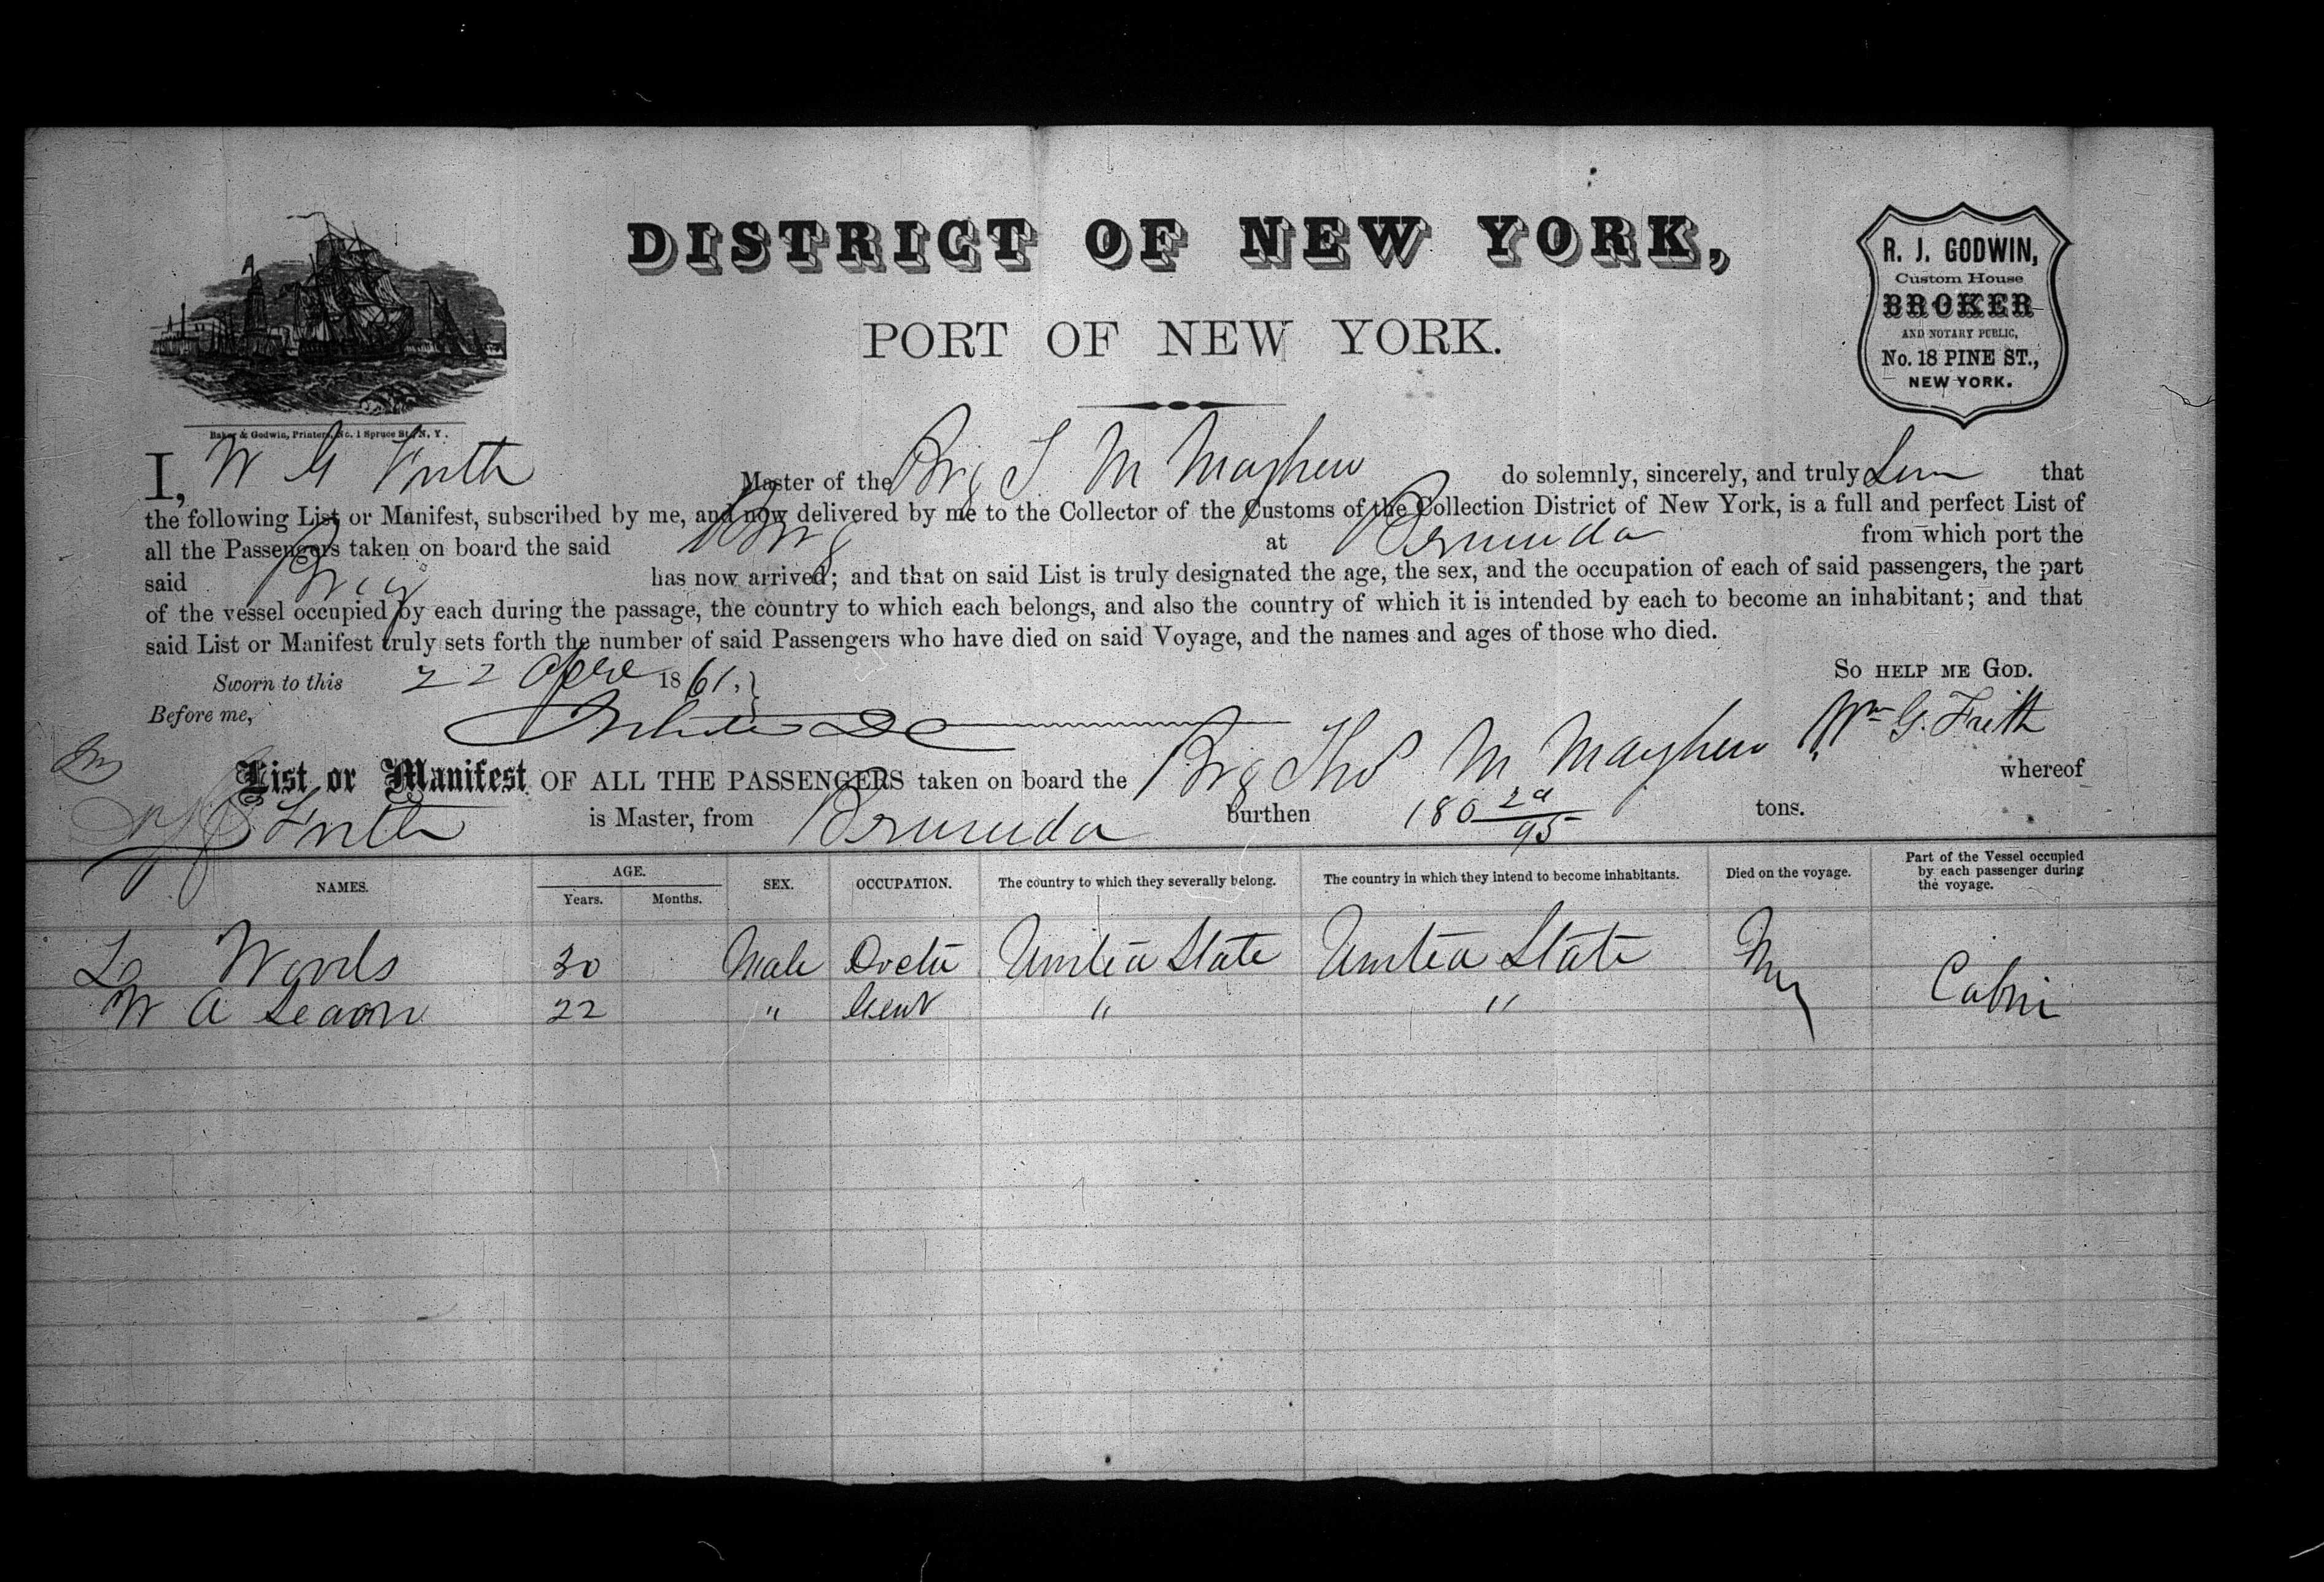 DISTRICT OF NEW YORK,
PORT OF NEW YORK.
R. J. GODWIN,
Custom House
BROKER
AND NOTARY PUBLIC,
No. 18 PINE ST.,
NEW YORK.
Baker & Godwin, Printers, No. 1 Spruce St., N. Y.
I, W G Frith Master of the Brig T M Mayhew do solemnly, sincerely, and truly that
the following List or Manifest, subscribed by me, and now delivered by me to the Collector of the Customs of the Collection District of New York, is a full and perfect List of
all the Passengers taken on board the said Brig at Bermuda from which port the
said Brig has now arrived; and that on said List is truly designated the age, the sex, and the occupation of each of said passengers, the part
of the vessel occupied by each during the passage, the country to which each belongs, and also the country of which it is intended by each to become an inhabitant; and that
said List or Manifest truly sets forth the number of said Passengers who have died on said Voyage, and the names and ages of those who died.
Sworn to this 22 1861. So help me God.
Before me, Wm G. Frith
List or Manifest OF ALL THE PASSENGERS taken on board the Brig Thos M Mayhew whereof
Frith is Master, from Bermuda burthen 180 tons.
NAMES. AGE. Years. Months. SEX. OCCUPATION. The country to which they severally belong. The country in which they intend to become inhabitants. Died on the voyage. Part of the Vessel occupied by each passenger during the voyage.
Woods 30 Male United State United State
W A 22 " Gent " " Cabin